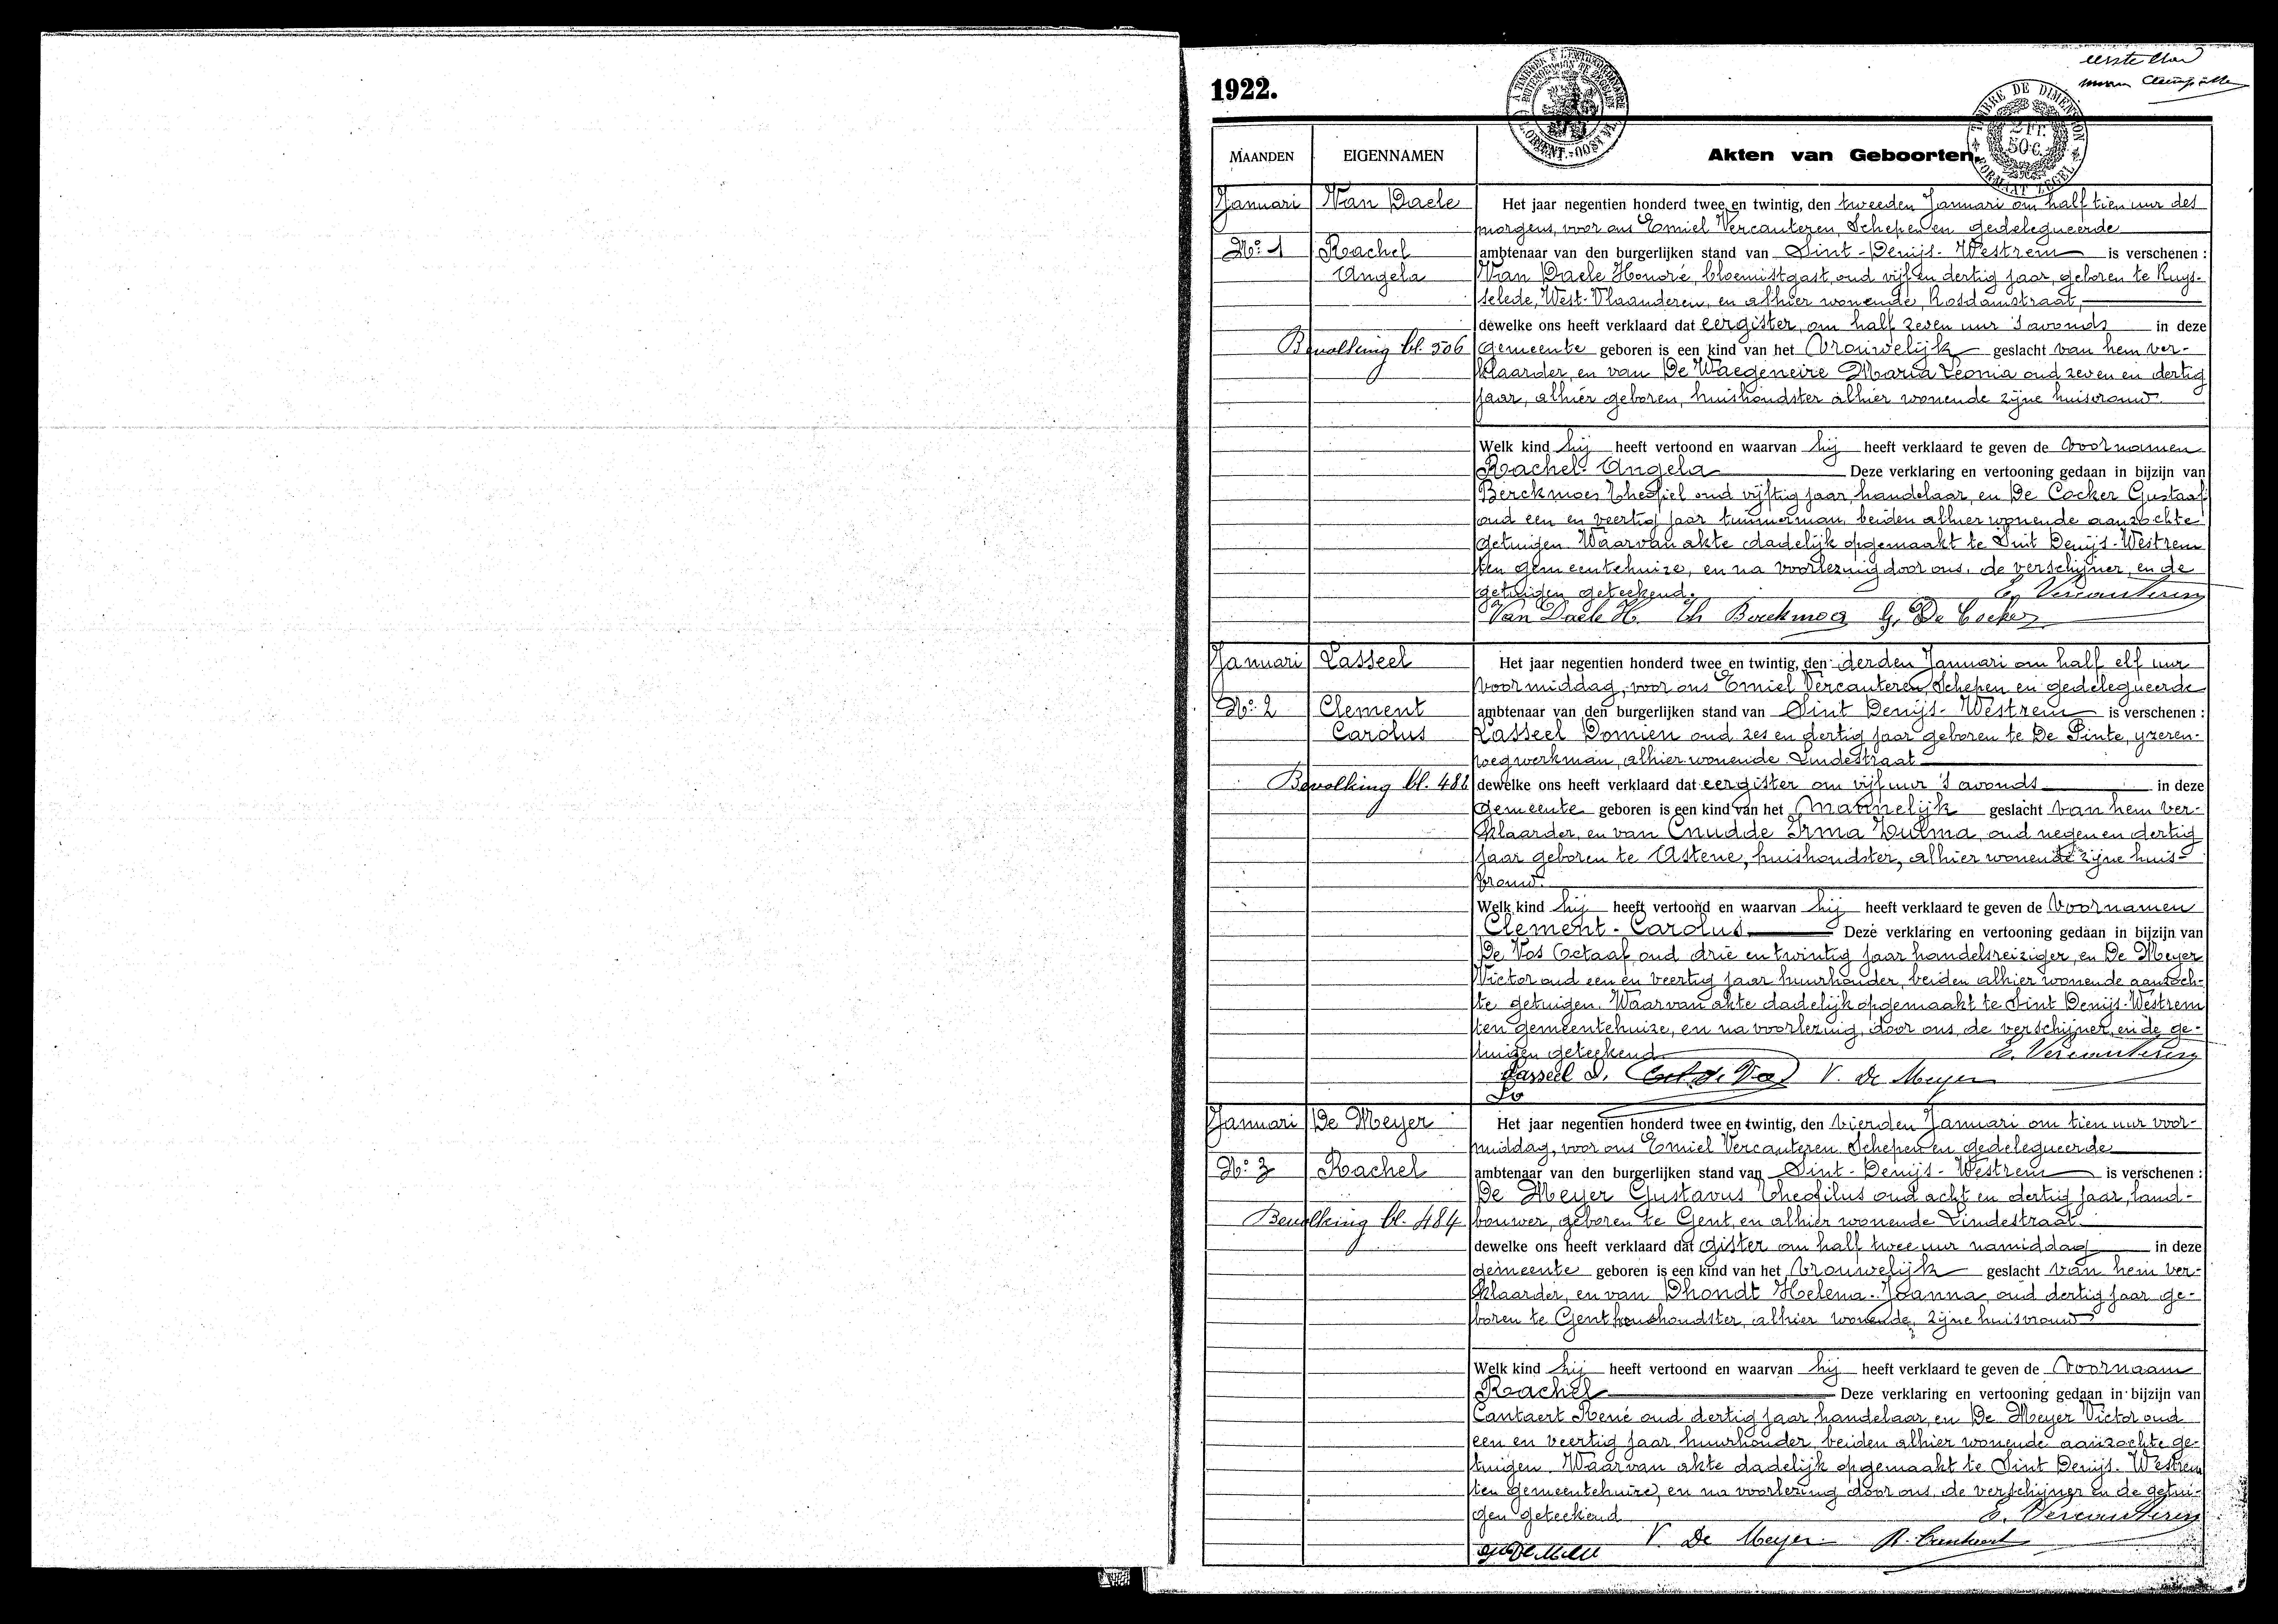 eerste blad
1922.
TIMBRE DE DIMENSION
2 Fr.
50 C.
FORMAAT ZEGEL
MAANDEN EIGENNAMEN Akten van Geboorten.
Januari Van Daele Het jaar negentien honderd twee en twintig, den tweeden Januari om half tien uur des
morgens, voor ons Emiel Vercauteren, Schepen en gedelegueerde
No: 1 Rachel ambtenaar van den burgerlijken stand van Sint-Denijs-Westrem is verschenen :
Angela Van Daele Honoré, bloemistgast, oud vijf en dertig jaar, geboren te Ruys-
selede, West-Vlaanderen, en alhier wonende, Rosdamstraat,
dewelke ons heeft verklaard dat eergister, om half zeven uur 's avonds in deze
Bevolking bl. 506 gemeente geboren is een kind van het Vrouwelijk geslacht van hem ver-
klaarder, en van De Waegeneire Maria Léonia oud zeven en dertig
jaar, alhier geboren, huishoudster alhier wonende zijne huisvrouw.
Welk kind hij heeft vertoond en waarvan hij heeft verklaard te geven de voornamen
Rachel-Angela Deze verklaring en vertooning gedaan in bijzijn van
Berckmoes Theofiel oud vijftig jaar, handelaar, en De Cocker Gustaaf
oud een en veertig jaar timmerman, beiden alhier wonende aanzochte
getuigen. Waarvan akte dadelijk opgemaakt te Sint Denijs-Westrem
ten gemeentehuize, en na voorlezing door ons, de verschijner, en de
getuigen geteekend. E. Vercauteren
Van Daele H. Th Berckmoes G. De Cocker
Januari Lasseel Het jaar negentien honderd twee en twintig, den derden Januari om half elf uur
voormiddag, voor ons Emiel Vercauteren, Schepen en gedelegueerde
No: 2 Clement ambtenaar van den burgerlijken stand van Sint Denijs-Westrem is verschenen :
Carolus Lasseel Domien oud zes en dertig jaar geboren te De Pinte, yzeren-
wegwerkman, alhier wonende Lindestraat
Bevolking bl. 486 dewelke ons heeft verklaard dat eergister om vijf uur 's avonds in deze
gemeente geboren is een kind van het Mannelijk geslacht van hem ver-
klaarder, en van Cnudde Irma Zulma, oud negen en dertig
jaar geboren te Astene, huishoudster, alhier wonende zijne huis-
vrouw.
Welk kind hij heeft vertoond en waarvan hij heeft verklaard te geven de Voornamen
Clement-Carolus Deze verklaring en vertooning gedaan in bijzijn van
De Vos Octaaf, oud drie en twintig jaar handelsreiziger, en De Meyer
Victor oud een en veertig jaar huurhouder, beiden alhier wonende aanzoch-
te getuigen. Waarvan akte dadelijk opgemaakt te Sint Denijs-Westrem
ten gemeentehuize, en na voorlezing, door ons, de verschijner, en de ge-
tuigen geteekend E. Vercauteren
Lasseel D. Oct. De Vos V. De Meyer
Januari De Meyer Het jaar negentien honderd twee en twintig, den vierden Januari om tien uur voor-
middag, voor ons Emiel Vercauteren, Schepen en gedelegueerde
No: 3 Rachel ambtenaar van den burgerlijken stand van Sint-Denijs-Westrem is verschenen :
De Meyer Gustavus Theofilus oud acht en dertig jaar, land-
Bevolking bl. 484 bouwer, geboren te Gent, en alhier wonende Lindestraat
dewelke ons heeft verklaard dat gister om half twee uur namiddag in deze
gemeente geboren is een kind van het Vrouwelijk geslacht van hem ver-
klaarder, en van Dhondt Helena-Joanna, oud dertig jaar ge-
boren te Gent huishoudster, alhier wonende, zijne huisvrouw
Welk kind hij heeft vertoond en waarvan hij heeft verklaard te geven de Voornaam
Rachel Deze verklaring en vertooning gedaan in bijzijn van
Cantaert René oud dertig jaar handelaar, en De Meyer Victor oud
een en veertig jaar, huurhouder, beiden alhier wonende aanzochte ge-
tuigen. Waarvan akte dadelijk opgemaakt te Sint Denijs-Westrem
ten gemeentehuize, en na voorlezing door ons, de verschijner en de getui-
gen geteekend E. Vercauteren
V. De Meyer R. Cantaert